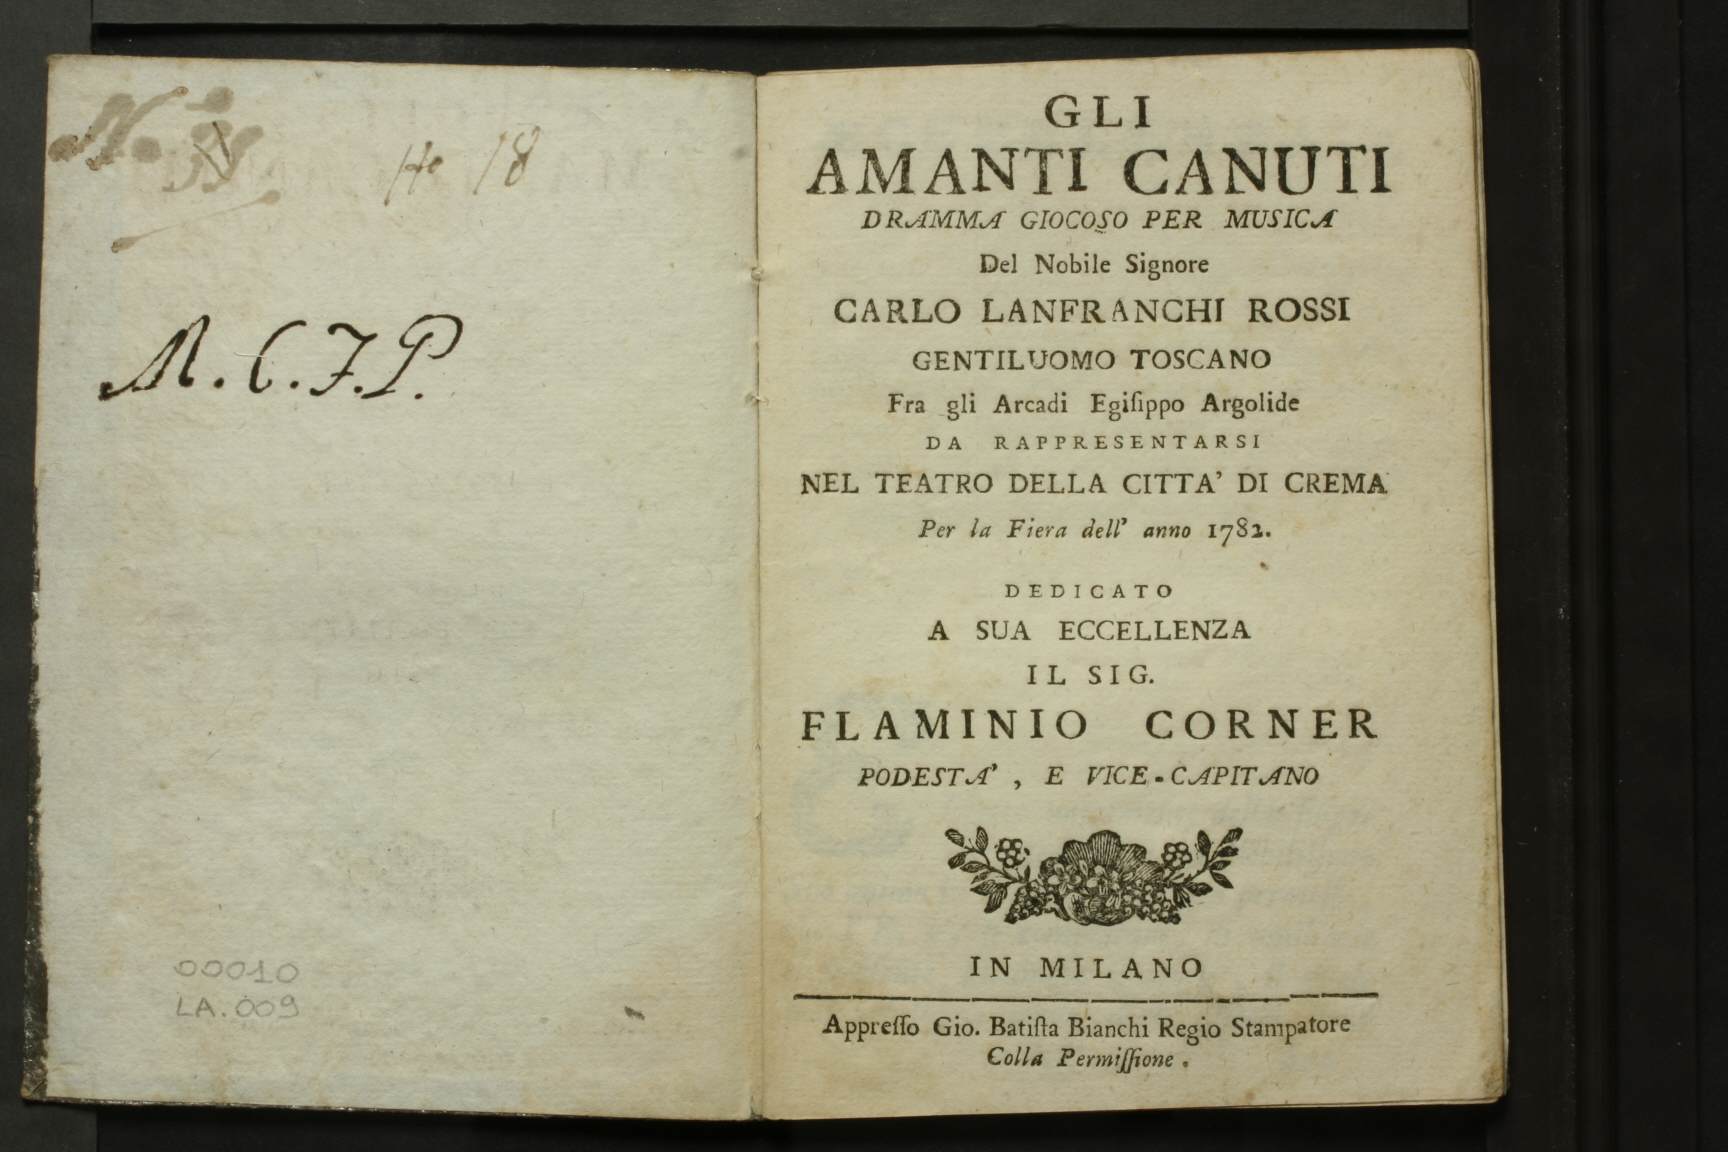 18
M. C. J. P.
00010
LA. 009
GLI
AMANTI CANUTI
DRAMMA GIOCOSO PER MUSICA
Del Nobile Signore
CARLO LANFRANCHI ROSSI
GENTILUOMO TOSCANO
Fra gli Arcadi Egiſippo Argolide
DA RAPPRESENTARSI
NEL TEATRO DELLA CITTA' DI CREMA
Per la Fiera dell' anno 1782.
DEDICATO
A SUA ECCELLENZA
IL SIG.
FLAMINIO CORNER
PODESTA', E VICE-CAPITANO
IN MILANO
Appreſſo Gio. Batiſta Bianchi Regio Stampatore
Colla Permiſſione.